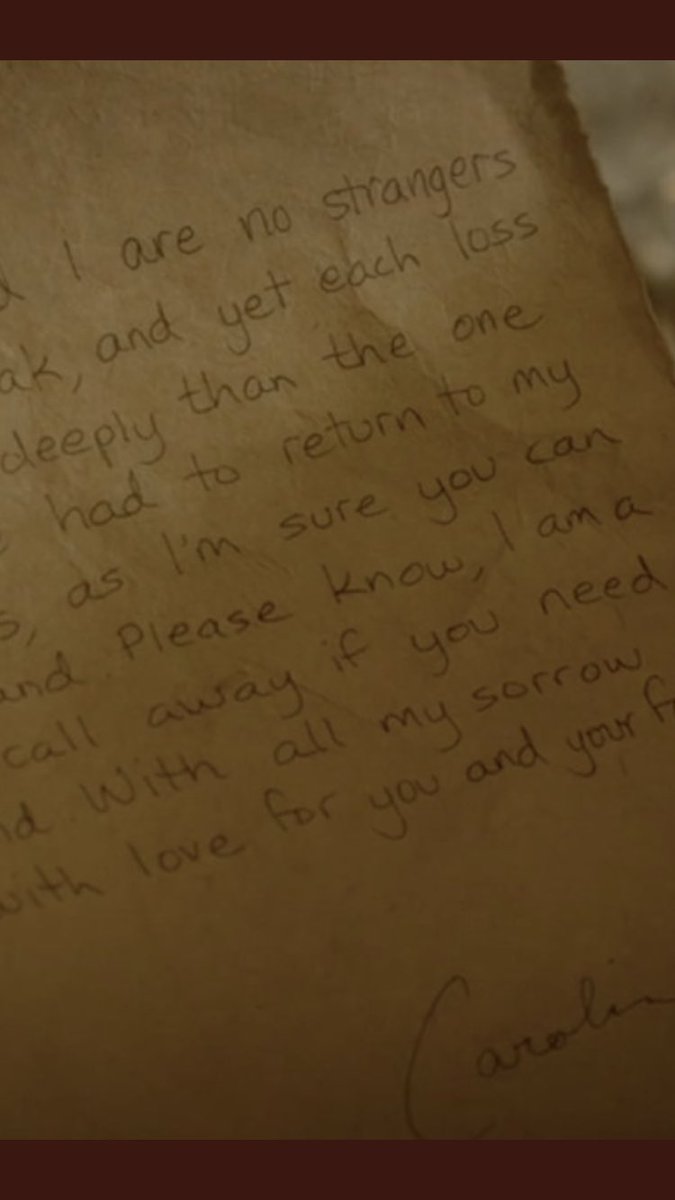 I are no strangers
ak, and yet each loss
deeply than the one
had to return to my
s, as I'm sure you can
and. Please know, I am a
call away if you need
nd. With all my sorrow
with love for you and your f
Carolin